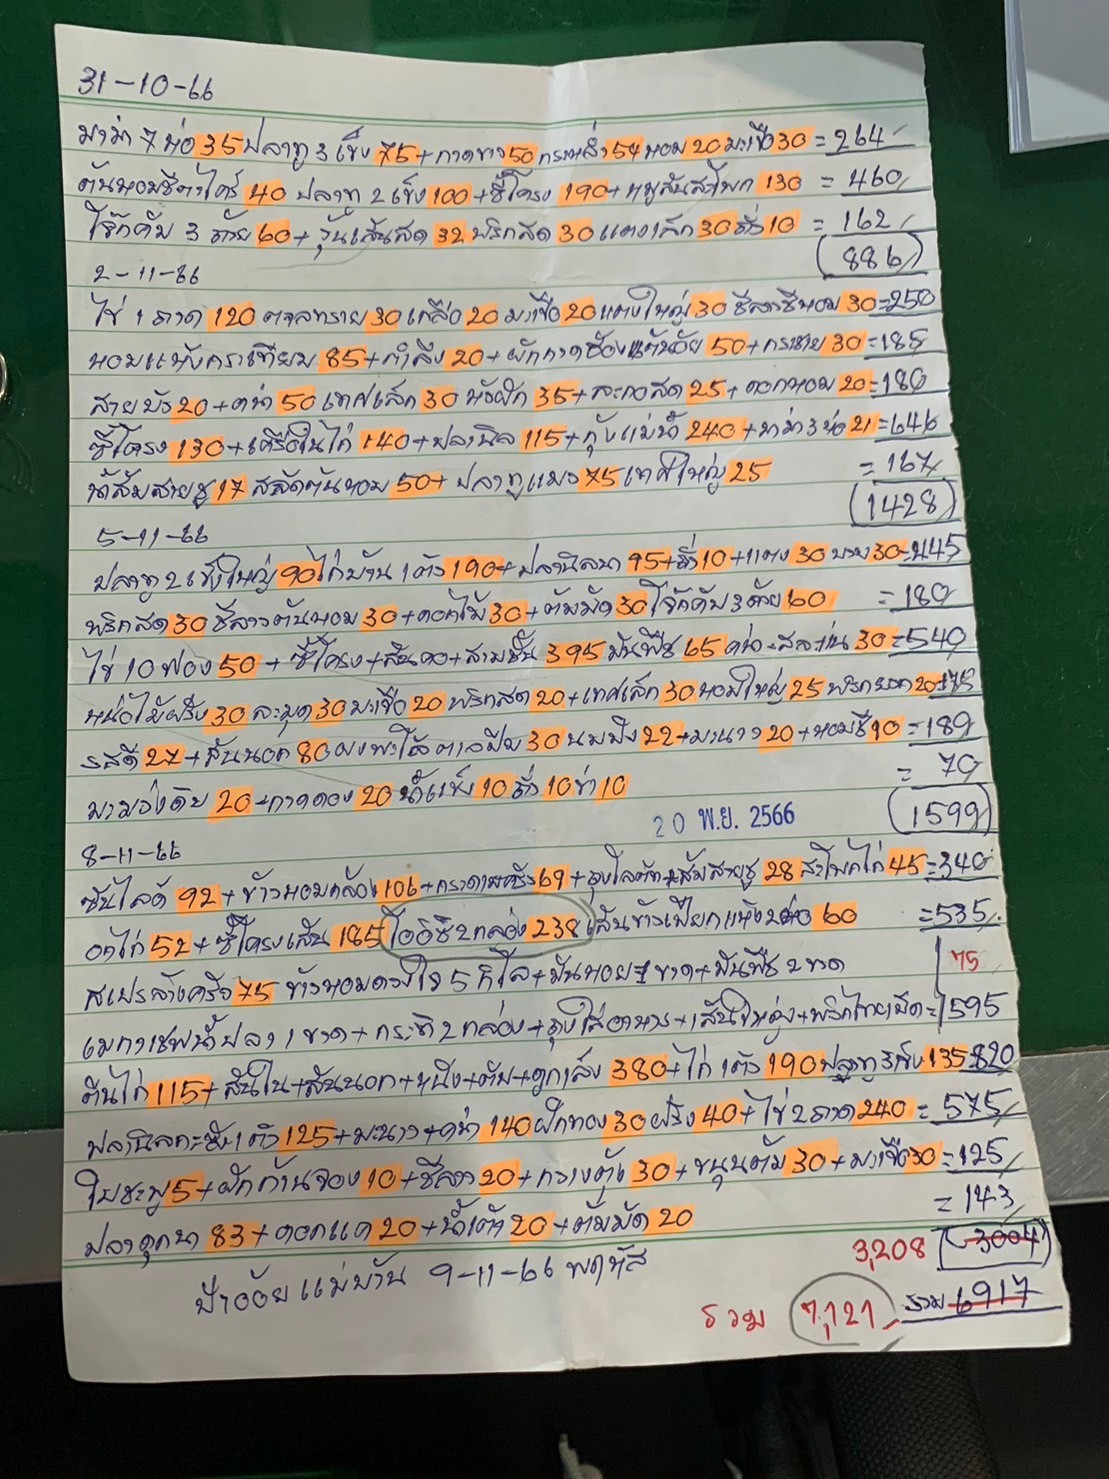 31-10-66
มาม่า 7 ห่อ 35 ปลาทู 3 เข่ง 75+ กาดขาว 50 กะหล่ำ 54 หอม 20 มะเขือ 30 = 264
ต้นหอมชีตะไคร้ 40 ปลาทู 2 เข่ง 100+ซี่โครง 190+หมูสันสะโพก 130 = 460
โจ๊กคัพ 3 ถ้วย 60+วุ้นเส้นสด 32 พริกสด 30 แตงเล็ก 30 ถั่ว 10 = 162
(886)
2-11-66
ไข่ 1 ถาด 120 น้ำตาลทราย 30 เกลือ 20 มะเขือ 20 แตงใหญ่ 30 ชีลาวชีหอม 30=250
หอมแห้งกระเทียม 85+ตำลึง 20+ผักกาด 50+กระชาย 30=185
สายบัว 20+คะน้า 50 เทศเล็ก 30 ถั่วฝัก 35+สะตอสด 25+ดอกหอม 20=180
ซี่โครง 130+เครื่องในไก่ 140+ปลานิล 115+กุ้งแม่น้ำ 240+มาม่า 3 ห่อ 21=646
น้ำส้มสายชู 17 สลัดต้นหอม 50+ ปลาทูแมว 75 เทศใหญ่ 25 = 167
(1428)
5-11-66
ปลาทู 2 เข่งใหญ่ 90 ไก่บ้าน 1 ตัว 190+ปลานิลนา 95+ถั่ว 10+แตง 30 บวบ 30=445
พริกสด 30 ชีลาวต้นหอม 30+ดอกไม้ 30+ต้มมัด 30 โจ๊กคัพ 3 ถ้วย 60 = 180
ไข่ 10 ฟอง 50 + ซี่โครง+สันคอ+สามชั้น 395 น้ำมันพืช 65 คะน้า+สะระแหน่ 30=540
หน่อไม้ฝรั่ง 30 ละมุด 30 มะเขือ 20 พริกสด 20+เทศเล็ก 30 หอมใหญ่ 25 พริกหยวก 20=175
รสดี 27+สันนอก 80 ผงพะโล้ 30 นม 22+มะนาว 20+หอมชี 10=189
มะม่วงดิบ 20+กาดดอง 20 น้ำแข็ง 10 ถั่ว 10 ข่า 10 = 70
(1599)
20 พ.ย. 2566
8-11-66
ซันไลต์ 92 + ข้าวหอมกล้อง 106+กระดาษครัว 69+ส้มสายชู 28 สะโพกไก่ 45=340
อกไก่ 52+ซี่โครงเส้น 185 โออิชิ 2 กล่อง 238 เส้นข้าวเปียกแห้ง 2 ห่อ 60 =535
สเปรย์ล้างครัว 75 ข้าวหอมดวงใจ 5 กิโล+มันหอย 1 ขวด+มันพืช 2 ขวด 75
เมกาเชฟน้ำปลา 1 ขวด+กะทิ 2 กล่อง+ถุงใส่อาหาร+เส้นใหญ่+พริกไทยเม็ด=595
ตีนไก่ 115+สันใน+สันนอก+หนึง+ตับ+ลูกเล้ง 380+ไก่ 1 ตัว 190 ปลาทู 3 เข่ง 135=820
ปลานิล 1 ตัว 125+มะนาว+คะน้า 140 ฝักทอง 30 ฝรั่ง 40+ไข่ 2 ถาด 240 = 575
ใบชะพู 5+ผักก้านจอง 10+ชีลาว 20+กวางตุ้ง 30+ขนุนต้ม 30+มะเขือ 30=125
ปลาดุกนา 83+ดอกแค 20+น้ำเต้า 20+ต้มมัด 20 = 143
3,208 (3004)
ป้าอ้อย แม่บ้าน 9-11-66 พฤหัส
รวม 7,121 รวม 6917